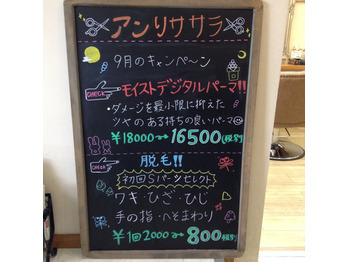 アンリササラ
9月のキャンペーン
CHECK
モイストデジタルパーマ!!
・ダメージを最小限に抑えた
ツヤのある持ちの良いパーマ
¥18000→16500(税別)
脱毛!!
CHECK
初回Sパーツセレクト
ワキ・ひざ・ひじ
手の指・へそまわり
¥1回2000→800税別